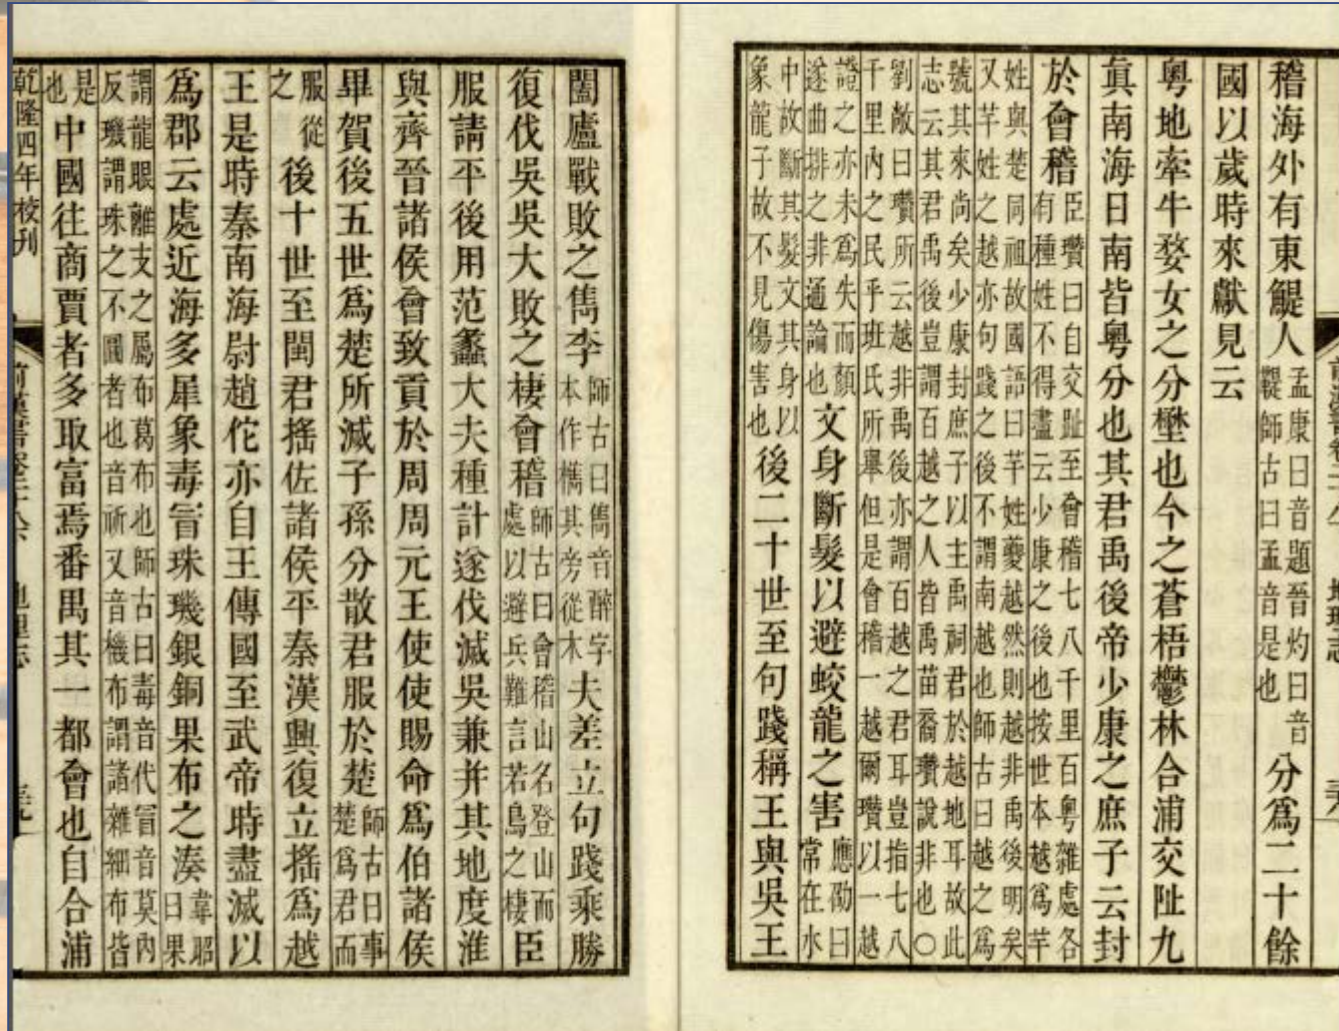 稽海外有東鯷人孟康曰音題晉灼曰音鞮師古曰孟音是也分爲二十餘
國以歲時來獻見云
粤地牽牛婺女之分壄也今之蒼梧鬱林合浦交阯九
眞南海日南皆粤分也其君禹後帝少康之庶子云封
於會稽臣瓚曰自交趾至會稽七八千里百粤雜處各有種姓不得盡云少康之後也按世本越爲芉
姓與楚同祖故國語曰芉姓夔越然則越非禹後明矣又芉姓之越亦句踐之後不謂南越也師古曰越之爲
號其來尚矣少康封庶子以主禹祠君於越地耳故此志云其君禹後豈謂百越之人皆禹苗裔瓚說非也○
劉敞曰瓚所云越非禹後亦謂百越之君耳豈指七八千里內之民乎班氏所舉但是會稽一越爾瓚以一越
證之亦未爲失而顏遂曲排之非通論也文身斷髮以避蛟龍之害應劭曰常在水
中故斷其髮文其身以象龍子故不見傷害也後二十世至句踐稱王與吳王
闔廬戰敗之雋李師古曰雋音醉字本作檇其旁從木夫差立句踐乘勝
復伐吳吳大敗之棲會稽師古曰會稽山名登山而處以避兵難言若鳥之棲臣
服請平後用范蠡大夫種計遂伐滅吳兼并其地度淮
與齊晉諸侯會致貢於周周元王使使賜命爲伯諸侯
畢賀後五世爲楚所滅子孫分散君服於楚師古曰事楚爲君而
服從之後十世至閩君搖佐諸侯平秦漢興復立搖爲越
王是時秦南海尉趙佗亦自王傳國至武帝時盡滅以
爲郡云處近海多犀象毒冒珠璣銀銅果布之湊韋昭曰果
謂龍眼離支之屬布葛布也師古曰毒音代冒音莫內反璣謂珠之不圓者也音祈又音機布謂諸雜細布皆
是也中國往商賈者多取富焉番禺其一都會也自合浦
乾隆四年校刊
地理志